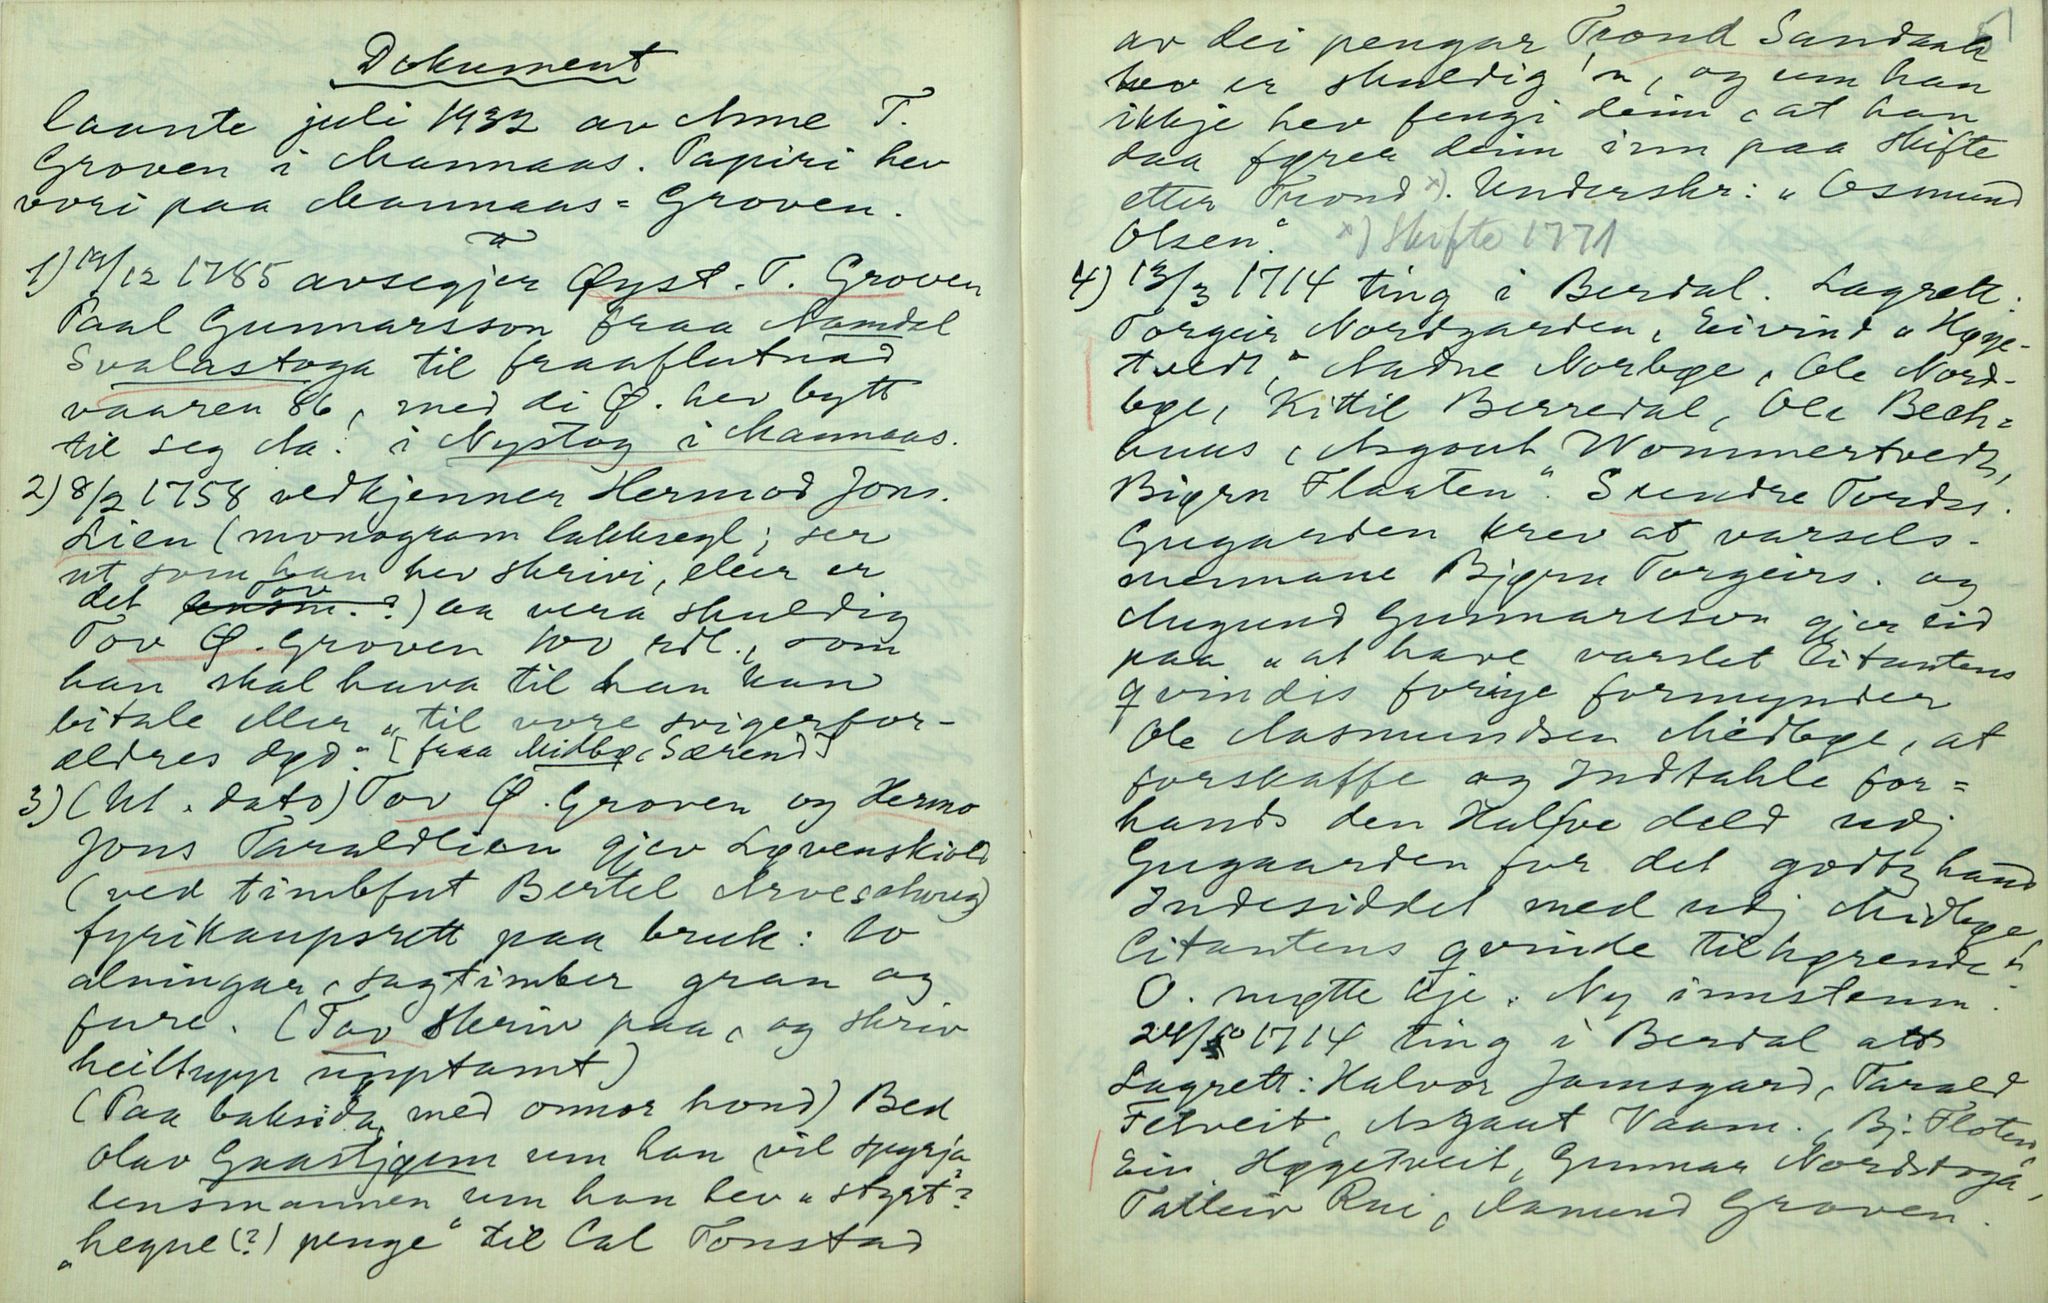 Dokument
laante juli 1932 av Anne T.
Groven i Mannaas. Papiri hev
vori paa Mannaas-Groven.
1) 19/12 1785 avsegjer Øyst. T. Groven
Paal Gunnarsson fraa Namdal
Svalastoga til fraaflutnad
vaaren 86, med di Ø. hev bytt
til seg Na. i Nystog i Mannaas.
2) 8/2 1758 vedkjenner Hermod Jons.
Lien (monogram lakksegl; ser
ut som han hev skrivi, eller er
det Tov lensm. ?) aa vera skuldig
Tov Ø. Groven 100 rdl., som
han skal hava til han kan
bitale eller "til vore svigerfor-
ældres død." [fraa Midbø, Særend]
3) (Ut. dato) Tov Ø. Groven og Hermo
Jons Taraldlien gjev Løvenskiold
(ved timbfut Bertel Arveschoug)
fyrikaupsrett paa bruk: 10
alningar, sagtimber gran og
fure. (Tov skriv paa, og skriv
heiltupp upptamt)
(Paa baksida, med onnor hond) Bed
Olav Gaastjønn um han vil spyrja
lensmannen um han hev "styrt?
"hegne(?) penge" til Cal Tonstad
51
av dei pengar Trond Sandaak
hev er skuldig 'n, og um han
ikkje hev fengi deim, at han
daa fører deim inn paa skifte
etter Trond x). Underskr: "Osmund
Olsen". x) Skifte 1771
4) 13/3 1714 ting i Berdal. Lagrett.
Torgeir Nordgarden, Eivind "Høge-
tvedt", Aadne Norbøe, Ole Nord-
bøe, Kittil Berredal, Ole Bech-
huus, Asgout Wommertvedt,
Biørn Flaaten". Svendre Tords.
Gugarden krev at varsels-
mennane Bjørn Torgeirs. og
Augund Gunnarsson gjer eid
paa "at have varslet Citantens
qvindis forige formynder
Ole Aasmundsen Midbøe, at
forskaffe og Indtahle for-
hands den Halfve deld udj
Gugaarden for det godtz hand
Indesiddet med udj Midbøe,
Citantens qvinde tilhørende".
O. møtte ikje. Ny innstemn.
24/10 1714 ting i Berdal att
Lagrett: Halvor Jamsgard, Tarald
Felveit, Asgaut Vaam., Bj. Floten
Eiv. Høgetveit, Gunnar Nordstoga,
Talleiv Rui, Aamund Groven.